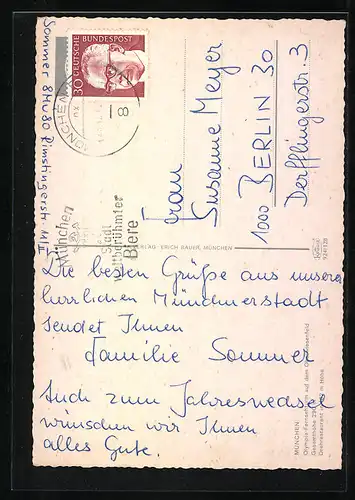 Sommer 8 MÜ 80
DEUTSCHE
BUNDESPOST
30
MÜNCHEN
München
Stadt
weltberühmter
Biere
Frau
Susanne Meyer
1000 BERLIN 30
Derfflingerstr. 3
VERLAG ERICH BAUER, MÜNCHEN
Die besten Grüße aus unserer
herrlichen Münchnerstadt
sendet Ihnen
Familie Sommer
Auch zum Jahreswechsel
wünschen wir Ihnen
alles Gute.
MÜNCHEN
Olympia-Fernsehturm auf dem Oberwiesenfeld